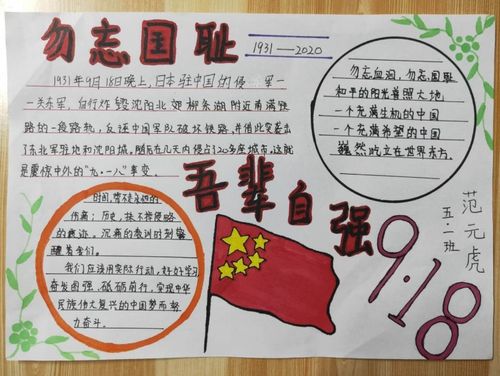 勿忘国耻
1931——2020
1931年9月18日晚上，日本驻中国的侵 军—
—关东军，自行炸毁沈阳北郊柳条湖附近南满铁
路的一段路轨，反诬中国军队破坏铁路，并借此突袭了
东北军驻地和沈阳城。随后在几天内侵占了20多座城市。这就
是震惊中外的“九·一八”事变。
勿忘血泪，勿忘国耻
和平的阳光普照大地
一个充满生机的中国
一个充满希望的中国
巍然屹立在世界东方。
吾辈自强
时间，带不走
伤痛；历史，抹不掉侵略
的痕迹。沉痛的教训时刻警
醒着我们。
我们应该用实际行动，好好学习
奋发图强，砥砺前行，实现中华
民族伟大复兴的中国梦而努
力奋斗。
范元虎
五·二班
9·18